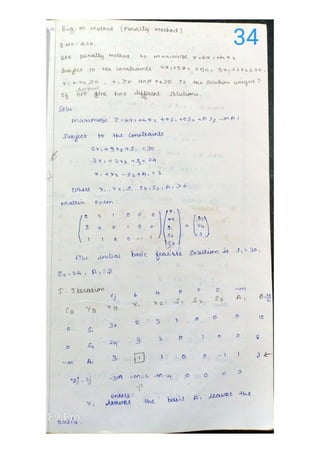 34
Big M method (Penalty Method)
Use penalty method to maximize z=6x1+4x2
Subject to the constraints 2x1+3x2 ≤30, 3x1+2x2≤24,
x1+x2≥3, x1≥0 and x2≥0. Is the solution unique?
If not give two different solutions.
Soln:
maximize Z=6x1+4x2+0S1+0S2+0S3-MA1
Subject to the constraints
2x1+3x2+S1=30
3x1+2x2+S2=24
x1+x2-S3+A1=3
where x1, x2, S1, S2, S3, A1 ≥0.
matrix form:
2 3 1 0 0 0 x1
3 2 0 1 0 0 = 24
1 1 0 0 -1 1
The initial basic feasible solution is S1=30,
S2=24, A1=3
I-Iteration
Cj 6 4 0 0 0 -M
CB YB XB x1 x2 S1 S2 S3 A1
0 S1 30 2 3 1 0 0 0 15
0 S2 24 3 2 0 1 0 0 8
-M A1 3 1 1 0 0 -1 1 3
Zj-Cj -3M -M-6 -M-4 0 0
enters
x1 leaves the basis A1 leaves the
basis.